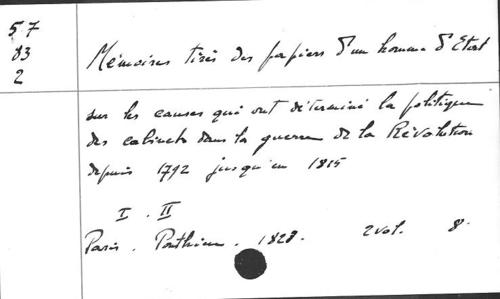 57
83
2
Mémoires tirés des papiers d'un homme d'Etat
sur les causes qui ont déterminé la politique
des cabinets dans la guerre de la Révolution
depuis 1792 jusqu'en 1815
I. II
Paris. Ponthieu. 1828. 2 vol. 8º